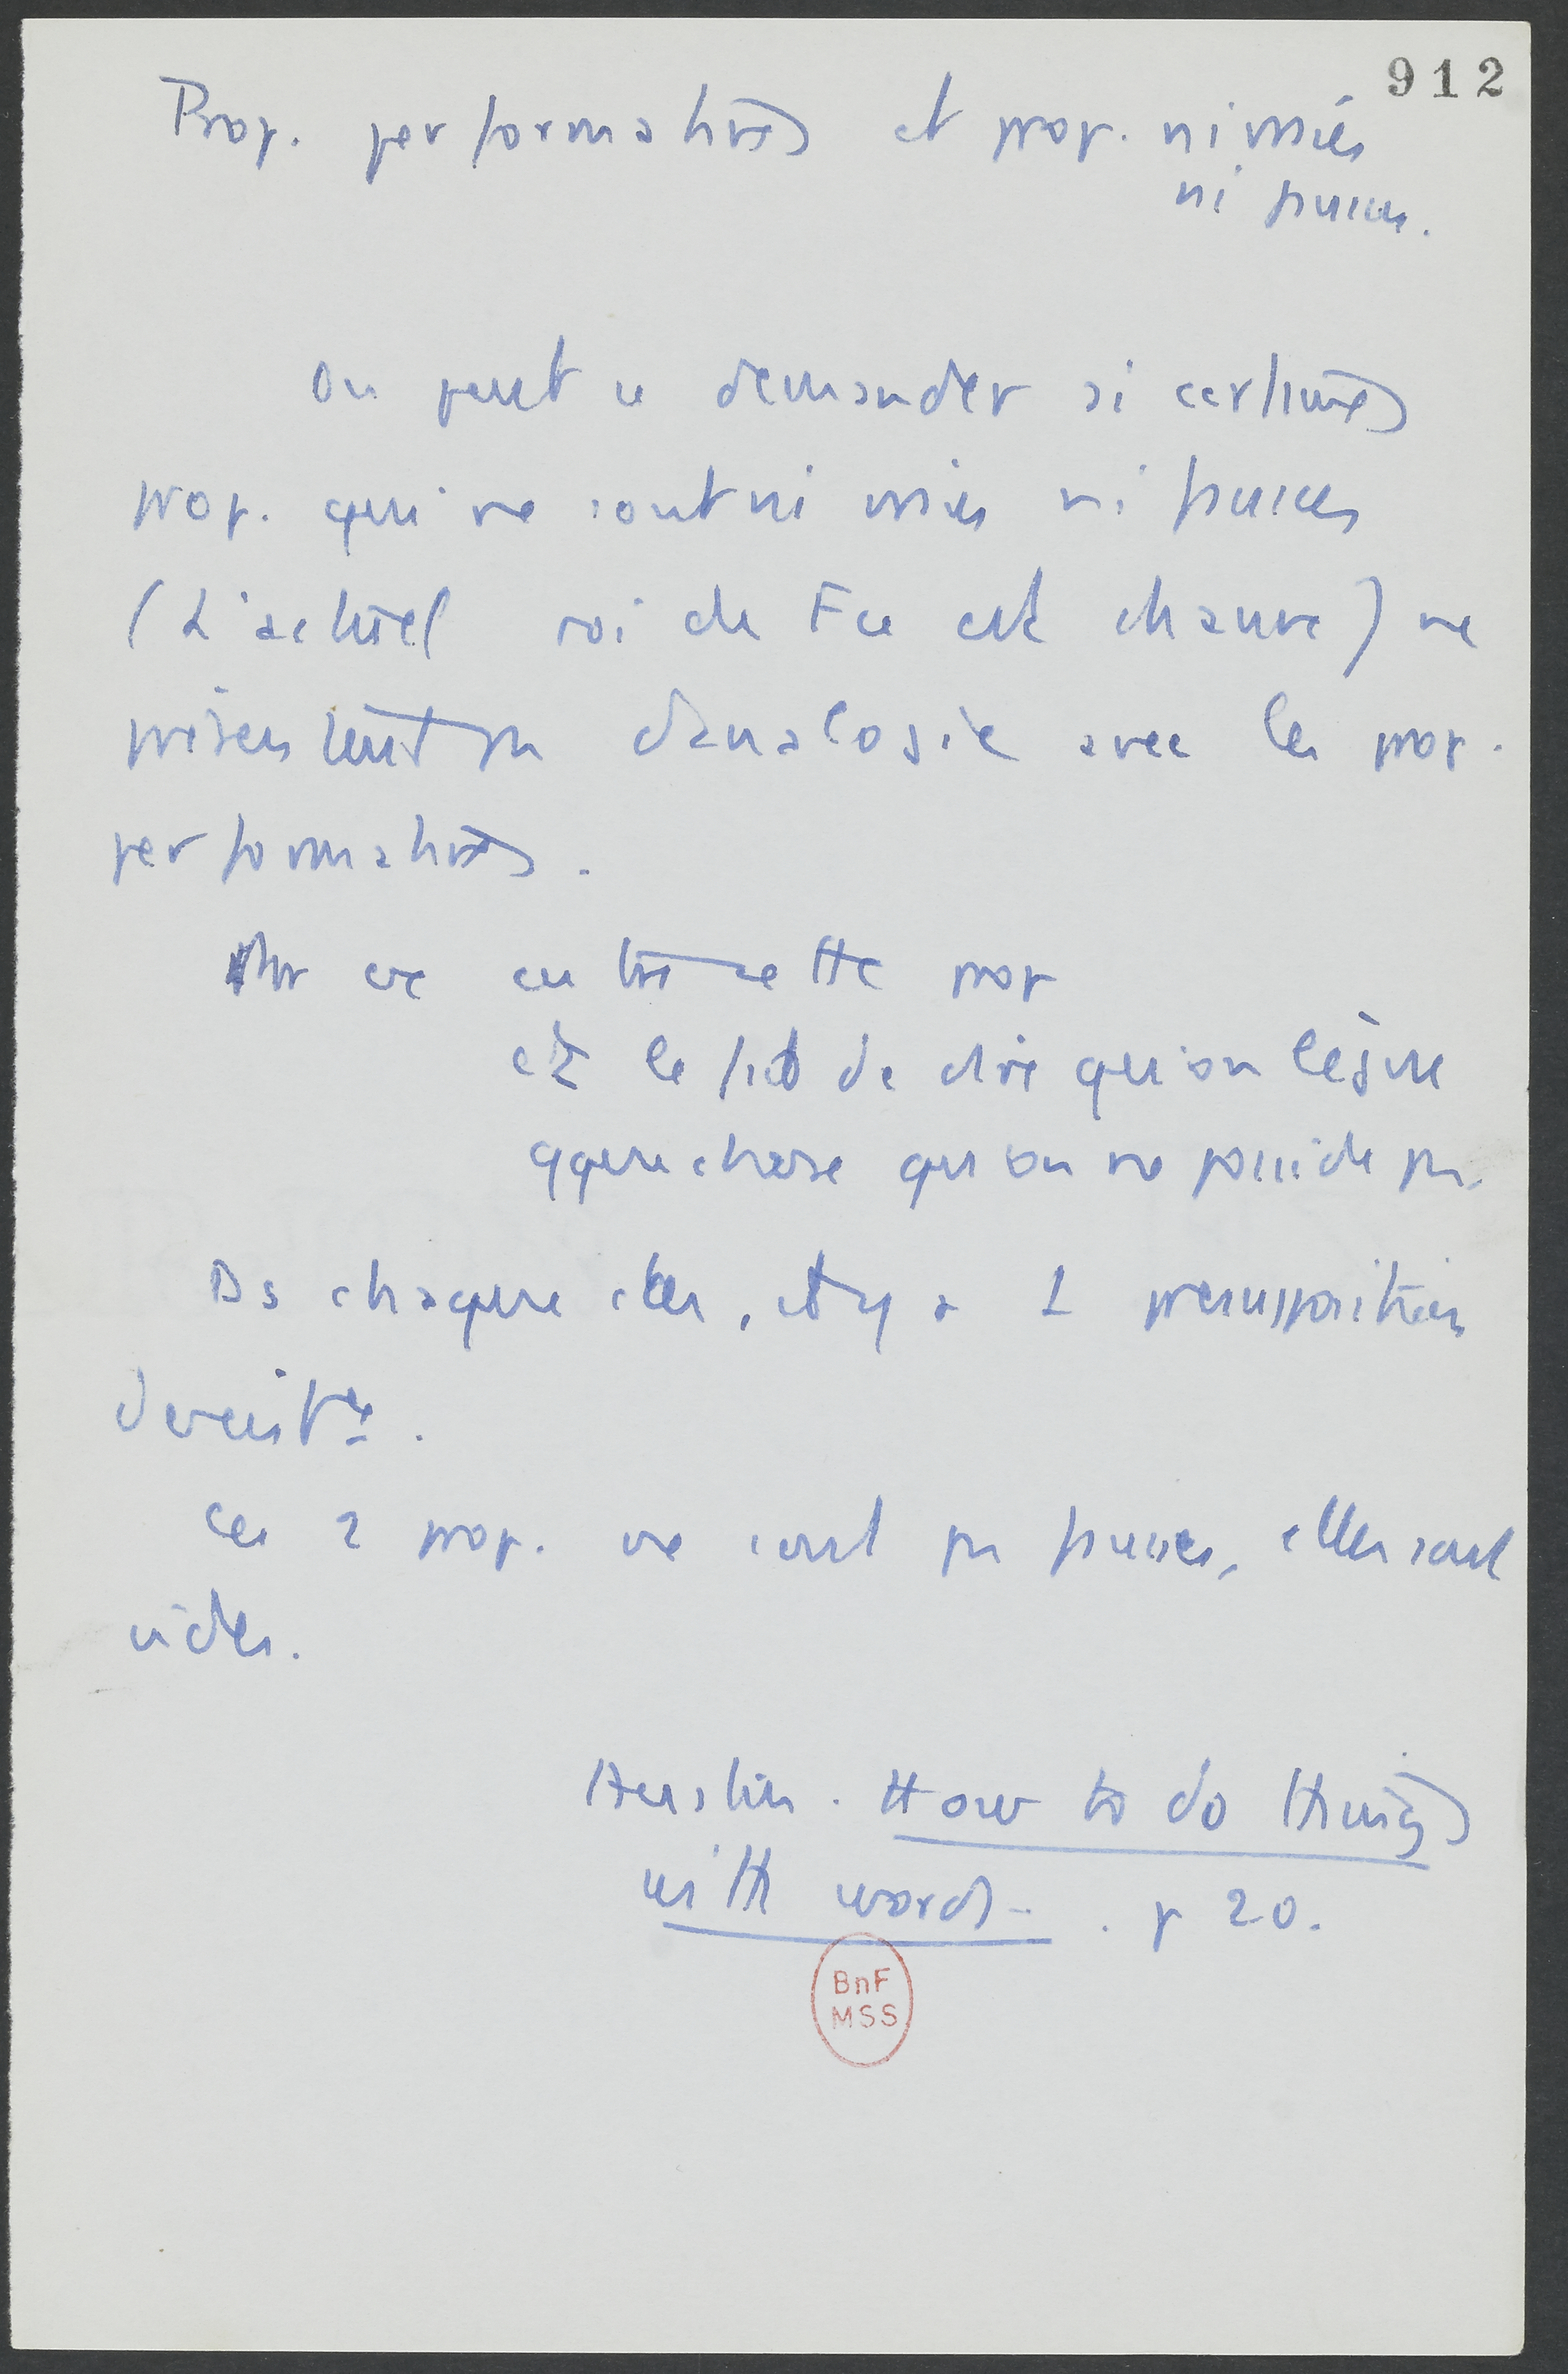 912
Prop. performatives et prop. ni vraies
ni fausses.
On peut se demander si certaines
prop. qui ne sont ni vraies ni fausses
(L'actuel roi de Fce est chauve) ne
présentent pas d'analogie avec les prop.
performatives.
entre cette prop
et le fait de dire qu'on lègue
qque chose qu'on ne possède pas.
Ds chaque cas, il y a 1 présupposition
d'existce.
Ces 2 prop. ne sont pas fausses, elles sont
vides.
Austin. How to do things
with words. p 20.
BnF
MSS